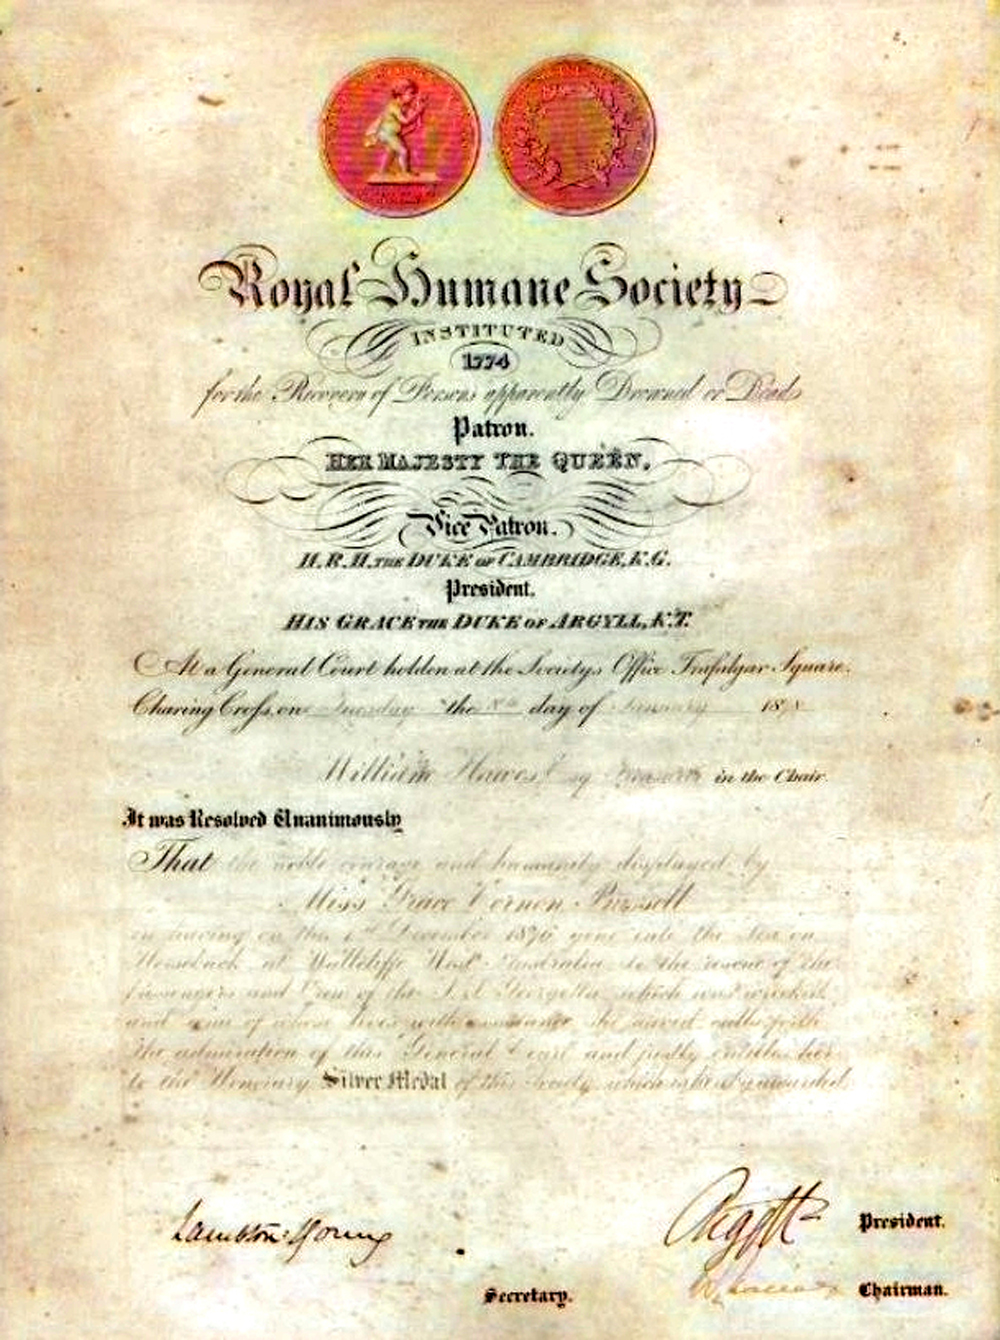 Royal Humane Society
INSTITUTED
1774
for the Recovery of Persons apparently Drowned or Dead
Patron.
HER MAJESTY THE QUEEN,
Vice Patron.
H.R.H. THE DUKE OF CAMBRIDGE, K.G.
President.
HIS GRACE THE DUKE OF ARGYLL, K.T.
At a General Court holden at the Society's Office Trafalgar Square.
Charing Cross, on Tuesday the 8th day of January 187
William Hawes Esq in the Chair.
It was Resolved Unanimously
That the noble courage and humanity displayed by
Miss Grace Vernon Bussell
in having on the December 1876 gone into the Sea on
Horseback at Wallcliffe West Australia to the rescue of the
passengers and Crew of the S.S. Georgette which was wrecked
and of whose lives with assistance she saved calls forth
the admiration of this General Court and justly entitles her
to the Honorary Silver Medal of this Society which is hereby awarded
Lambton Young
Argyll President.
Chairman.
Secretary.